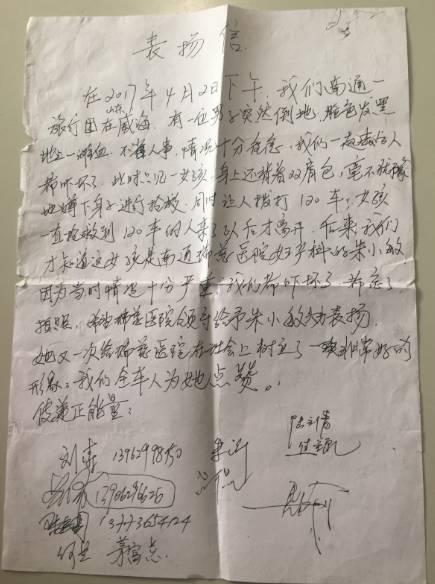 表扬信
在2017年4月2日下午,我们南通一
旅行团在山东威海,有一位男子突然倒地,脸色发黑
地上一滩血,不省人事,情况十分危急,我们一般老人
都吓坏了,此时只见一女孩身上还背着双肩包,毫不犹豫
地蹲下身子进行抢救,同时让人拨打120车,女孩
一直抢救到120车的人来了以后才离开,后来我们
才知道这女孩是南通瑞慈医院妇产科的朱小敏
因为当时情况十分严重,我们都吓坏了,都忘了
拍照,希望瑞慈医院领导给予朱小敏表扬,
她又一次给瑞慈医院在社会上树立了一项非常好的
形象。我们全车人为她点赞。
传递正能量:
刘
13962998150
13906296626
13773654124
何
茅富志